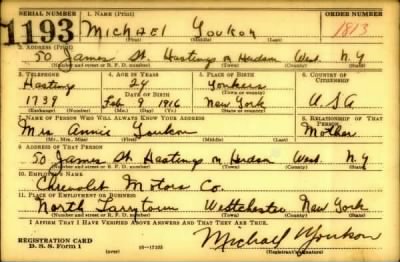 SERIAL NUMBER 1. NAME (Print) ORDER NUMBER
1193 MICHAEL Youkon 1813
2. ADDRESS (Print)
50 James St. Hastings on Hudson West. N.Y
(Number and street or R. F. D. number) (Town) (County) (State)
3. TELEPHONE 4. AGE IN YEARS 5. PLACE OF BIRTH 6. COUNTRY OF CITIZENSHIP
Hastings 24 Yonkers
1739 Feb 9 1916 New York U.S.A
(Exchange) (Number) (Mo.) (Day) (Yr.) (State or country)
7. NAME OF PERSON WHO WILL ALWAYS KNOW YOUR ADDRESS 8. RELATIONSHIP OF THAT PERSON
Mrs Annie Youkon Mother
(Mr., Mrs., Miss) (First) (Middle) (Last)
9. ADDRESS OF THAT PERSON
50 James St. Hastings on Hudson West. N.Y
(Number and street or R. F. D. number) (Town) (County) (State)
10. EMPLOYER'S NAME
Chevrolet Motors Co.
11. PLACE OF EMPLOYMENT OR BUSINESS
North Tarrytown Westchester New York
(Number and street or R. F. D. number) (Town) (County) (State)
I AFFIRM THAT I HAVE VERIFIED ABOVE ANSWERS AND THAT THEY ARE TRUE.
REGISTRATION CARD
D. S. S. Form 1 (over) 16-17105 Michael Youkon
(Registrant's signature)